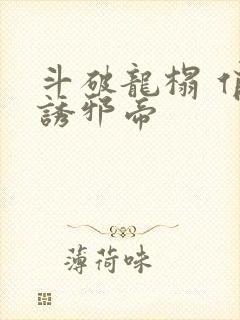 斗破龍榻
誘邪帝
薄荷味